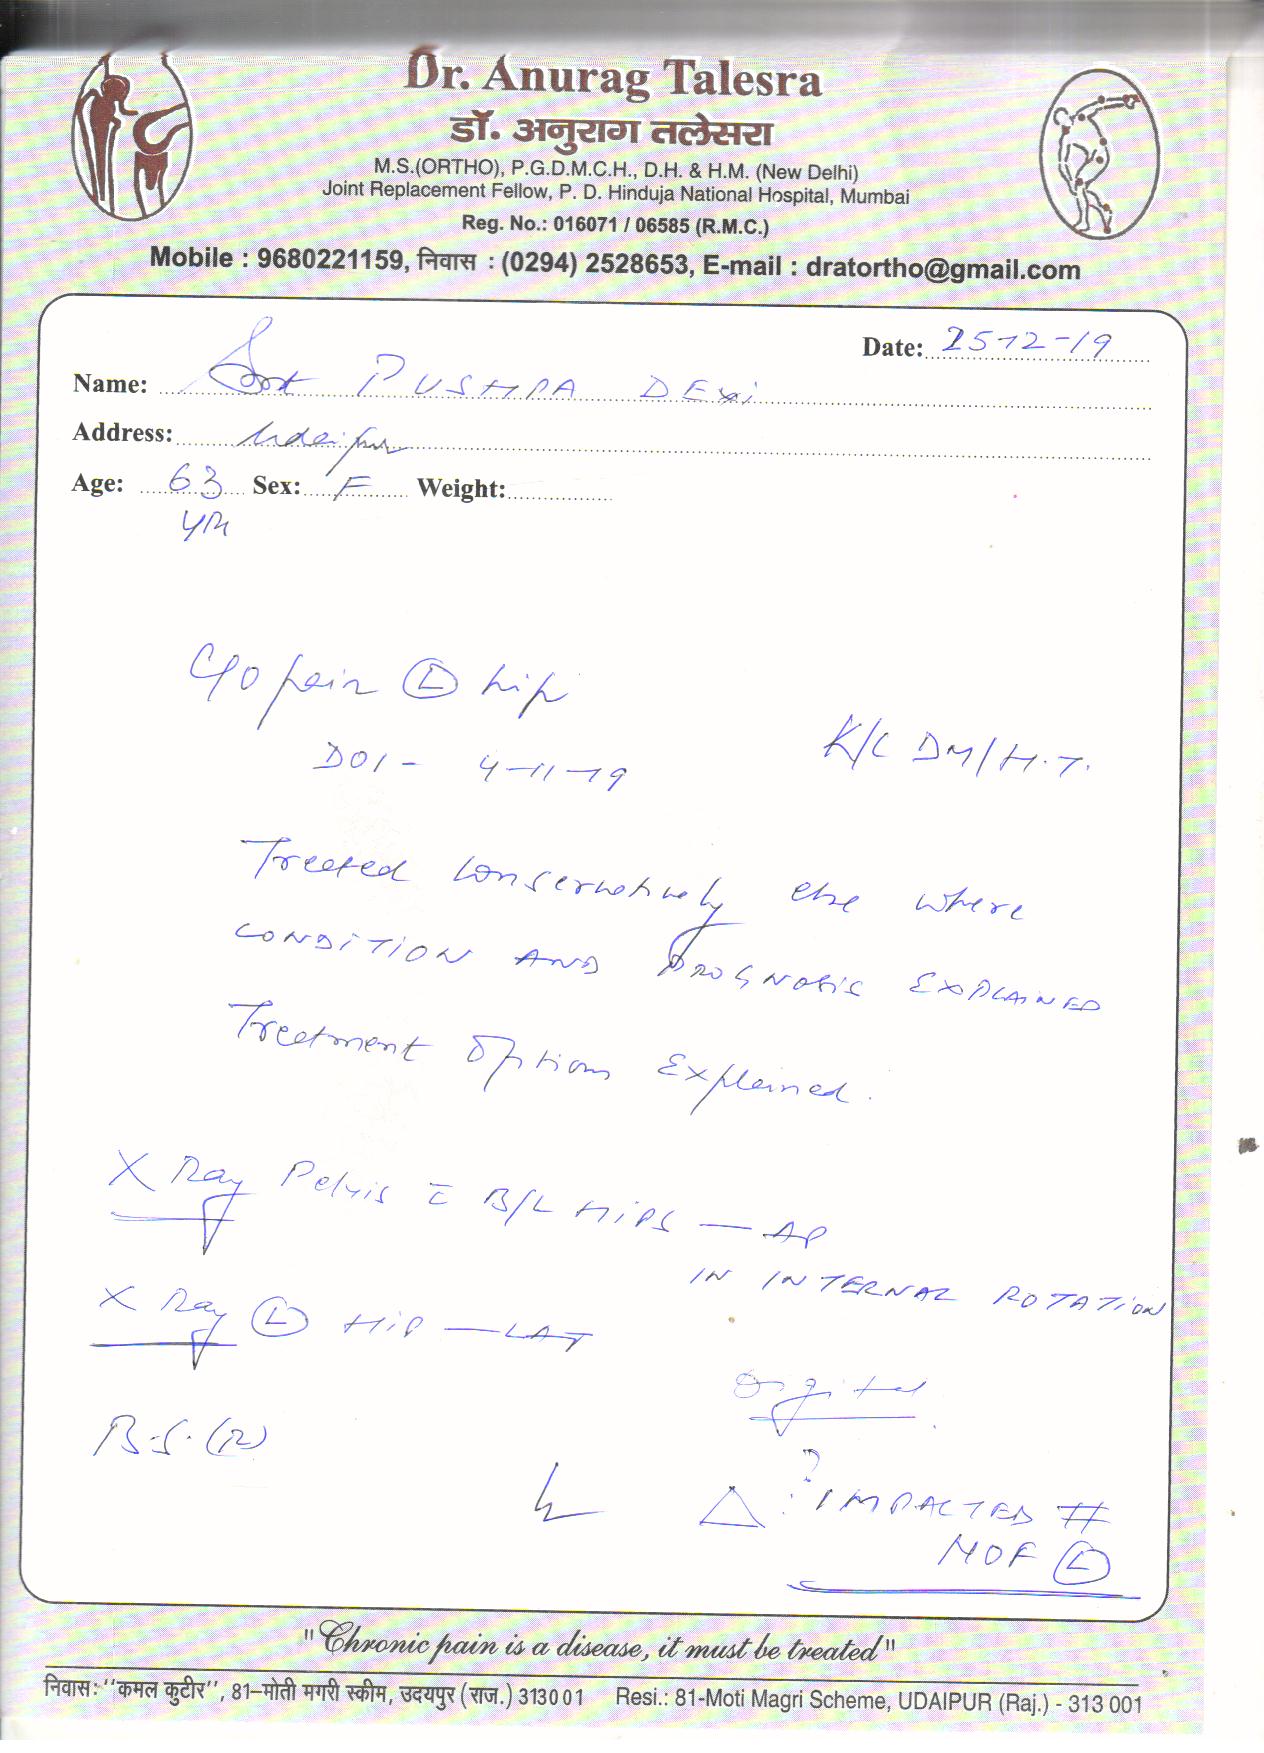 Dr. Anurag Talesra
डॉ. अनुराग तलेसरा
M.S.(ORTHO), P.G.D.M.C.H., D.H. & H.M. (New Delhi)
Joint Replacement Fellow, P. D. Hinduja National Hospital, Mumbai
Reg. No.: 016071 / 06585 (R.M.C.)
Mobile : 9680221159, निवास : (0294) 2528653, E-mail : dratortho@gmail.com
Date: 25-12-19
Name: Smt PUSHPA DEvi
Address: Udaipur
Age: 63 Sex: F Weight:
YR
C/o pain (L) hip
K/C DM/H.T.
DOI - 4-11-19
Treated Conservatively else where
CONDITION AND PROGNOSIS EXPLAINED
Treatment Options Explained.
X Ray Pelvis c̄ B/L HIPS — AP
IN INTERNAL ROTATION
X Ray (L) HIP — LAT
Digital
B.S. (R)
Δ : ? IMPACTED #
NOF (L)
"Chronic pain is a disease, it must be treated"
निवास: "कमल कुटीर", 81–मोती मगरी स्कीम, उदयपुर (राज.) 313001 Resi.: 81-Moti Magri Scheme, UDAIPUR (Raj.) - 313 001